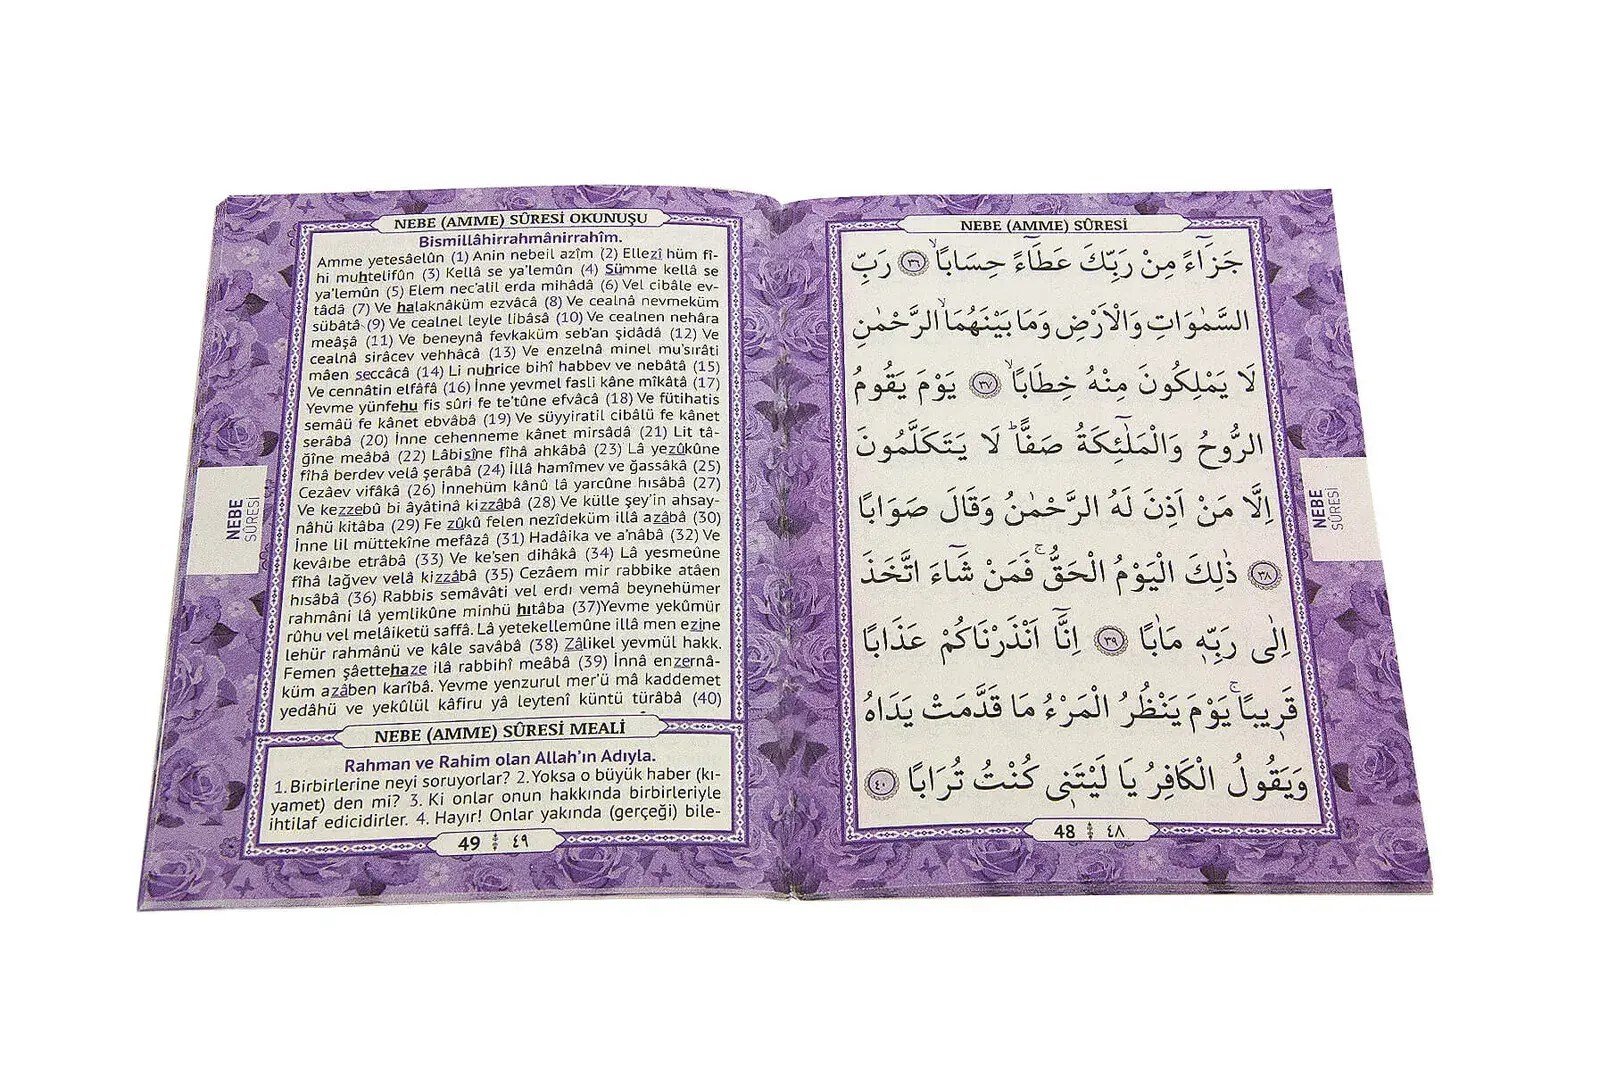 NEBE (AMME) SÛRESİ OKUNUŞU
Bismillâhirrahmânirrahîm.
Amme yetesâelûn (1) Anin nebeil azîm (2) Ellezî hüm fî-
hi muhtelifûn (3) Kellâ se ya'lemûn (4) Sümme kellâ se
ya'lemûn (5) Elem nec'alil erda mihâdâ (6) Vel cibâle ev-
tâdâ (7) Ve halaknâküm ezvâcâ (8) Ve cealnâ nevmeküm
sübâtâ (9) Ve cealnel leyle libâsâ (10) Ve cealnen nehâra
meâşâ (11) Ve beneynâ fevkaküm seb'an şidâdâ (12) Ve
cealnâ sirâcev vehhâcâ (13) Ve enzelnâ minel mu'sırâti
mâen seccâcâ (14) Li nuhrice bihî habbev ve nebâtâ (15)
Ve cennâtin elfâfâ (16) İnne yevmel fasli kâne mîkâtâ (17)
Yevme yünfehu fis sûri fe te'tûne efvâcâ (18) Ve fütihatis
semâü fe kânet ebvâbâ (19) Ve süyyiratil cibâlü fe kânet
serâbâ (20) İnne cehenneme kânet mirsâdâ (21) Lit tâ-
ğîne meâbâ (22) Lâbisîne fîhâ ahkâbâ (23) Lâ yezûkûne
fîhâ berdev velâ şerâbâ (24) İllâ hamîmev ve ğassâkâ (25)
Cezâev vifâkâ (26) İnnehüm kânû lâ yarcûne hısâbâ (27)
Ve kezzebû bi âyâtinâ kizzâbâ (28) Ve külle şey'in ahsay-
nâhü kitâba (29) Fe zûkû felen nezîdeküm illâ azâbâ (30)
İnne lil müttekîne mefâzâ (31) Hadâika ve a'nâbâ (32) Ve
kevâıbe etrâbâ (33) Ve ke'sen dihâkâ (34) Lâ yesmeûne
fîhâ lağvev velâ kizzâbâ (35) Cezâem mir rabbike atâen
hısâbâ (36) Rabbis semâvâti vel erdı vemâ beynehümer
rahmâni lâ yemlikûne minhü hıtâba (37)Yevme yekûmür
rûhu vel melâiketü saffâ. Lâ yetekellemûne illâ men ezine
lehür rahmânü ve kâle savâbâ (38) Zâlikel yevmül hakk.
Femen şâettehaze ilâ rabbihî meâbâ (39) İnnâ enzernâ-
küm azâben karîbâ. Yevme yenzurul mer'ü mâ kaddemet
yedâhü ve yekûlül kâfiru yâ leytenî küntü türâbâ (40)
NEBE (AMME) SÛRESİ MEALİ
Rahman ve Rahim olan Allah'ın Adıyla.
1.Birbirlerine neyi soruyorlar? 2.Yoksa o büyük haber (kı-
yamet) den mi? 3. Ki onlar onun hakkında birbirleriyle
ihtilaf edicidirler. 4. Hayır! Onlar yakında (gerçeği) bile-
49 ٤٩
NEBE
SÛRESİ
NEBE (AMME) SÛRESİ
جَزَٓاءً مِنْ رَبِّكَ عَطَٓاءً حِسَابًاۙ ﴿٣٦﴾ رَبِّ
السَّمٰوَاتِ وَالْاَرْضِ وَمَا بَيْنَهُمَاۙ الرَّحْمٰنِ
لَا يَمْلِكُونَ مِنْهُ خِطَابًاۙ ﴿٣٧﴾ يَوْمَ يَقُومُ
الرُّوحُ وَالْمَلٰٓئِكَةُ صَفًّاۜ لَا يَتَكَلَّمُونَ
اِلَّا مَنْ اَذِنَ لَهُ الرَّحْمٰنُ وَقَالَ صَوَابًا
﴿٣٨﴾ ذٰلِكَ الْيَوْمُ الْحَقُّۚ فَمَنْ شَٓاءَ اتَّخَذَ
اِلٰى رَبِّه۪ مَاٰبًا ﴿٣٩﴾ اِنَّٓا اَنْذَرْنَاكُمْ عَذَابًا
قَر۪يبًاۚ يَوْمَ يَنْظُرُ الْمَرْءُ مَا قَدَّمَتْ يَدَاهُ
وَيَقُولُ الْكَافِرُ يَا لَيْتَن۪ي كُنْتُ تُرَابًا ﴿٤٠﴾
48 ٤٨
NEBE
SÛRESİ